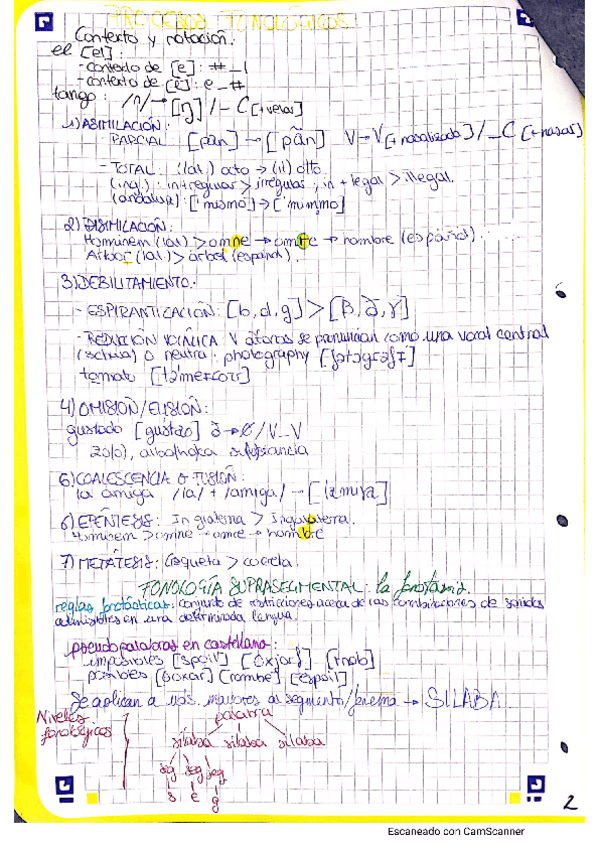 PROCESOS FONOLÓGICOS
Contexto y notación.
el [el]:
- contexto de [e]: #_l
- contexto de [l]: e_#
tango: /n/→[ŋ]/_C[+velar]
1) ASIMILACIÓN:
- PARCIAL: [pan]→[pãn] V→V[+nasalizada]/_C[+nasal]
- TOTAL: (lat.) octo → (it) otto.
(ingl.): in+regular > irregular, in + legal > illegal.
(andaluz): ['mismo]→['mimmo]
2) DISIMILACIÓN:
Hominem (lat) > omne → omre → hombre (español).
Arbor (lat.) > árbol (español).
3) DEBILITAMIENTO.
- ESPIRANTIZACIÓN: [b, d, g] > [β, ð, γ]
- REDUCCIÓN VOCÁLICA V átonas se pronuncian como una vocal central
(schwa) o neutra: photography
4) OMISIÓN/ELISIÓN:
gustado [gustao] ð→Ø/V_V
6) COALESCENCIA o FUSIÓN:
la amiga /la/ + /amiga/ →
6) EPÉNTESIS: Inglaterra > Ingalaterra.
Hominem > omne → omre → hombre
7) METÁTESIS: croqueta > cocreta.
FONOLOGÍA SUPRASEGMENTAL: la
reglas fonotácticas: conjunto de restricciones acerca de las combinaciones de sonidos
admisibles en una determinada lengua.
pseudopalabras en castellano:
imposibles [spoil]
posibles [boxar] [rombe] [espoil]
Se aplican a uds. mayores al segmento/fonema → SÍLABA
Niveles
fonológicos
palabra
sílaba sílaba sílaba
seg seg seg
s e g
2
Escaneado con CamScanner